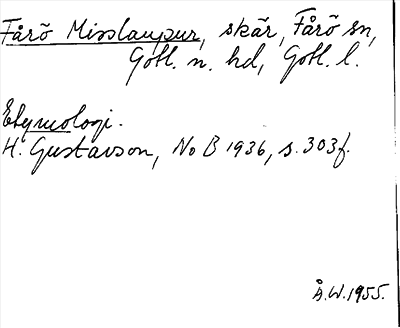 Fårö Misslaupur, skär, Fårö sn,
Gotl. n. hd, Gotl. l.
Etymologi.
H. Gustavson, No B 1936, s. 303f.
Å.W. 1955.